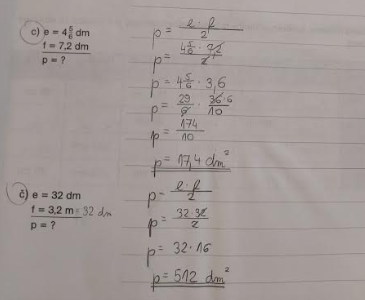 c) e = 4 5/6 dm
f = 7,2 dm
p = ?
p = e · f / 2
p = 4 5/6 · 7,2 / 2
p = 4 5/6 · 3,6
p = 29/6 · 36 · 6 / 10
p = 174/10
p = 17,4 dm²
č) e = 32 dm
f = 3,2 m = 32 dm
p = ?
p = e · f / 2
p = 32 · 32 / 2
p = 32 · 16
p = 512 dm²